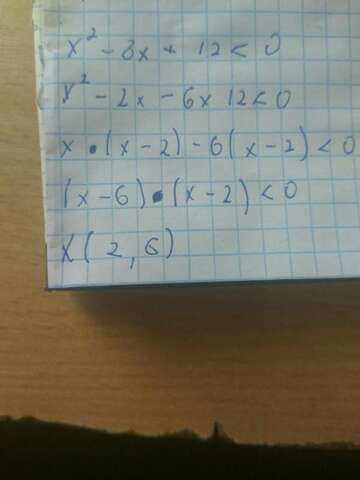 x² - 8x + 12 < 0
x² - 2x - 6x 12 < 0
x • (x - 2) - 6(x - 2) < 0
(x - 6) • (x - 2) < 0
x(2, 6)